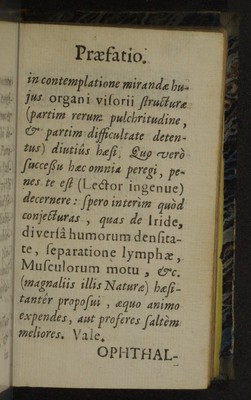 Præfatio.
in contemplatione mirandæ hu-
jus organi visorii structuræ
(partim rerum pulchritudine,
& partim difficultate deten-
tus) diutiùs hæsi. Quo verò
successu hæc omnia peregi, pe-
nes te est (Lector ingenue)
decernere: spero interim quòd
conjecturas, quas de Iride,
diversâ humorum densita-
te, separatione lymphæ,
Musculorum motu, &c.
(magnaliis illis Naturæ) hæsi-
tantèr proposui, æquo animo
expendes, aut proferes saltèm
meliores. Vale.
OPHTHAL-